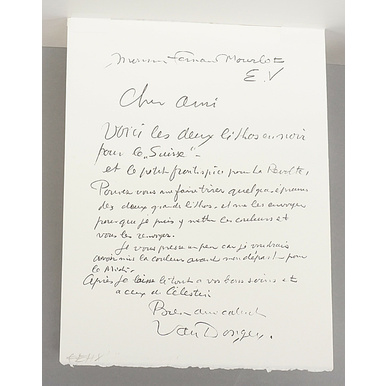 Monsieur Fernand Mourlot
E.V
Cher ami
Voici les deux lithos en noir
pour le "Suisse"
et le petit frontispice pour la Révolte,
Pouvez vous me faire tirer quelques épreuves
des deux grands lithos, et me les envoyer
pour que je puis y mettre les couleurs et
vous les renvoyer.
Je vous presse un peu car je voudrais
avoir mis la couleur avant mon départ pour
le Midi.
Après je laisse le tout à vos bons soins et
à ceux de Célestin
Bien amicalement
Van Dongen.